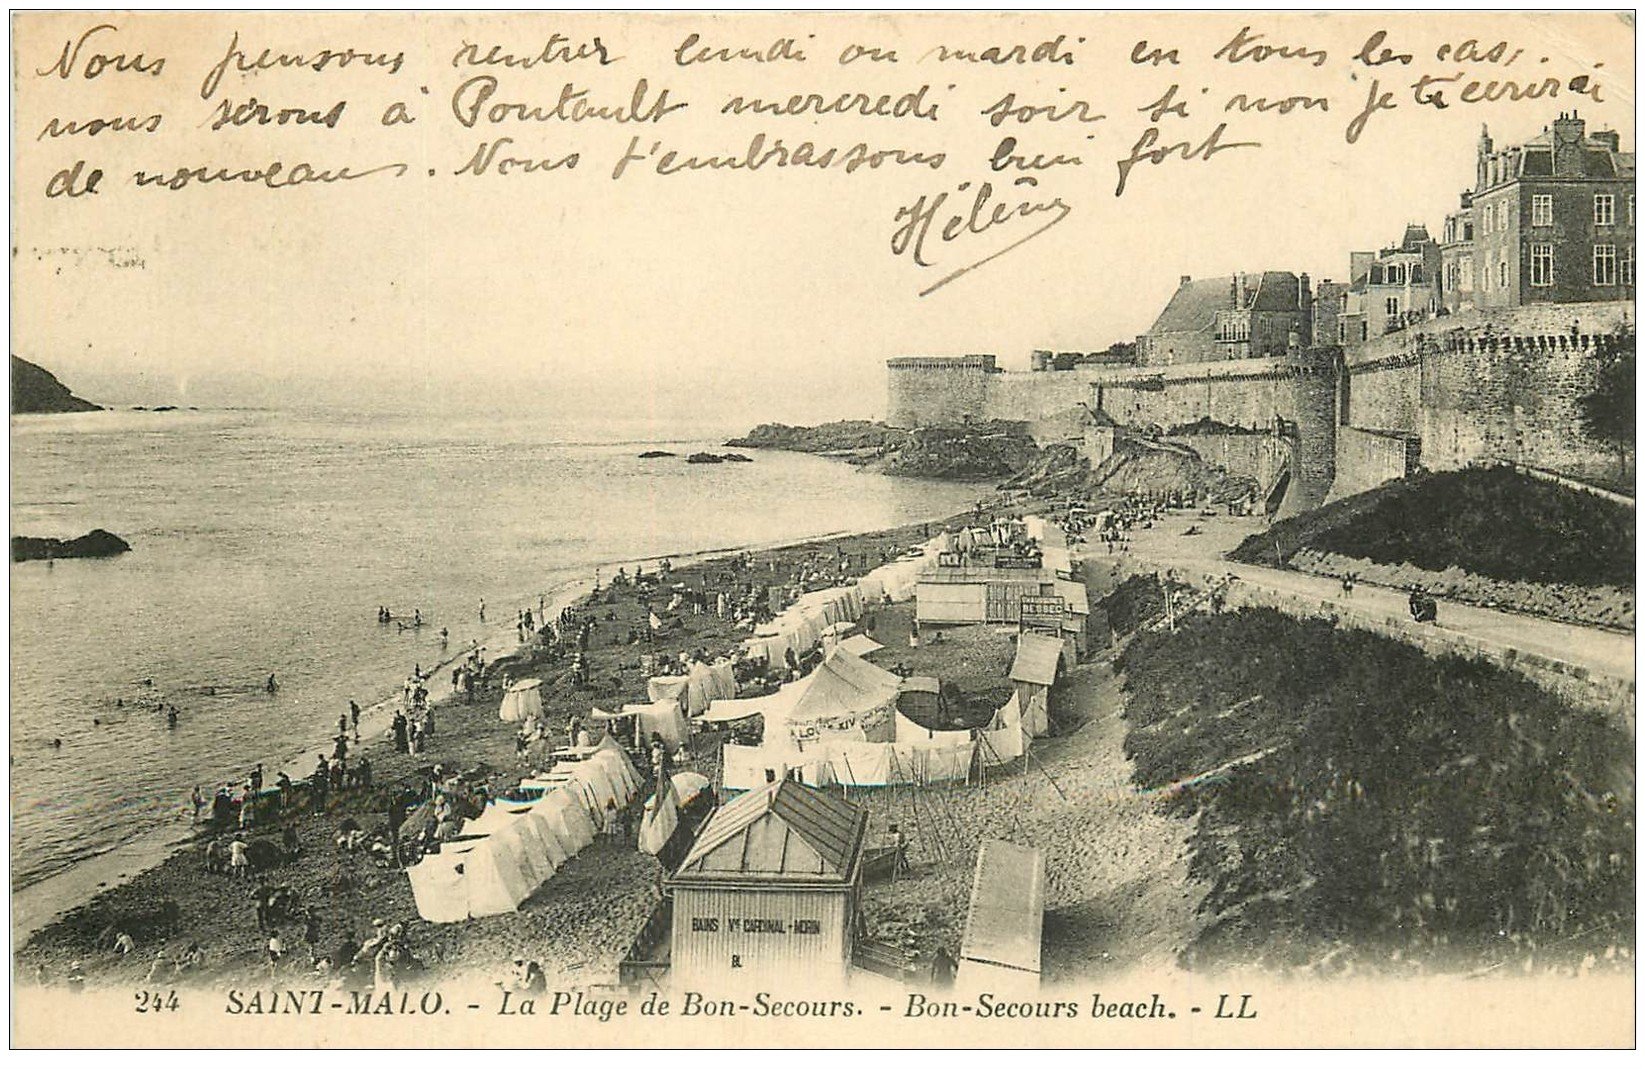 Nous pensons rentrer lundi ou mardi en tous les cas,
nous serons à Pontault mercredi soir si non je t'écrirai
de nouveau. Nous t'embrassons bien fort
Hélène
BESSEC
LOUIS XIV
BAINS Vve CARDINAL-MORIN
BL
244 SAINT-MALO. - La Plage de Bon-Secours. - Bon-Secours beach. - LL